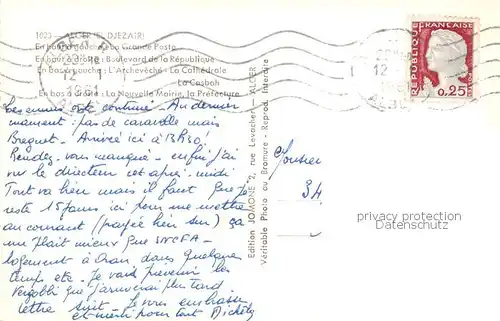 1023 — ALGER (EL DJEZAIR)
En haut à gauche : La Grande Poste
En haut à droite : Boulevard de la République
En bas à gauche : L'Archevêché - La Cathédrale
La Casbah
En bas à droite : La Nouvelle Mairie, la Préfecture
Les ennuis ont continué - Au dernier
moment : pas de caravelle mais
Breguet - Arrivée ici à 13h30!
Rendez-vous manqué - enfin j'ai
vu le directeur cet après-midi
Tout va bien mais il faut que je
reste 15 jours ici pour me mettre
au courant (payée bien sur) ça
me plait mieux que SNCFA -
logement à Oran dans quelque
temps etc. Je vais prévenir les
que j'arriverai plus tard
lettre suit - Je vous embrasse
et merci pour tout
Edition JOMONE, 2, rue Levacher - ALGER
Véritable Photo au Bromure - Reprod. Interdite
34
REPUBLIQUE FRANÇAISE
0,25
privacy protection
Datenschutz